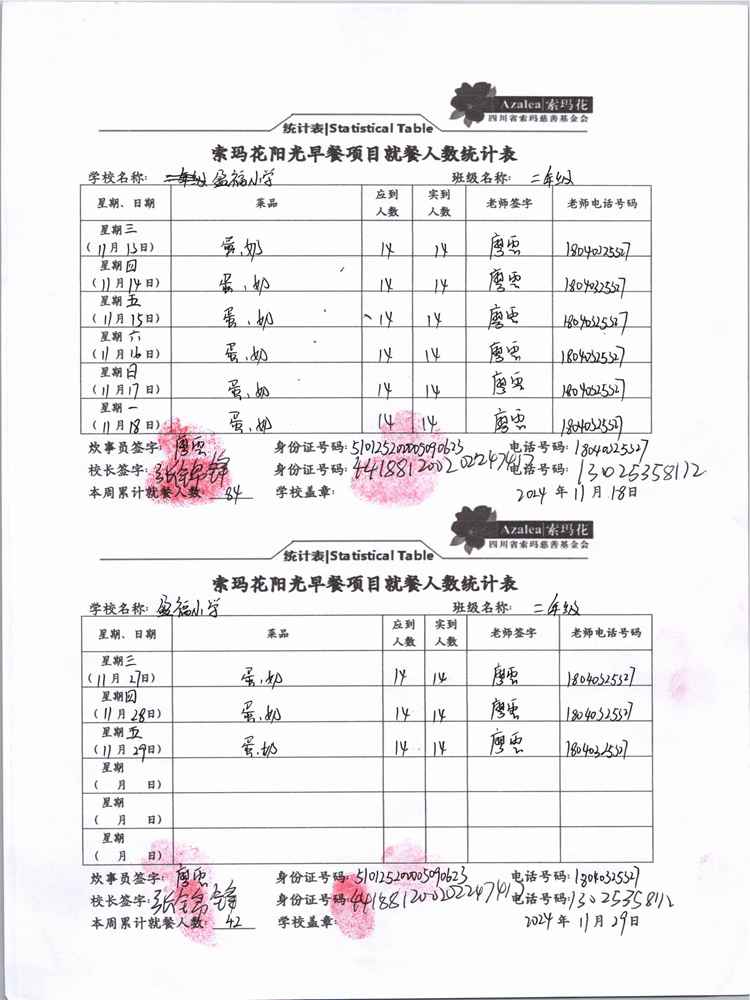 Azalea 索玛花
四川省索玛慈善基金会
统计表|Statistical Table
索玛花阳光早餐项目就餐人数统计表
学校名称: 盈福小学 班级名称: 二年级
星期、日期 菜品 应到人数 实到人数 老师签字 老师电话号码
星期三
(11月13日) 蛋、奶 14 14 廖雲 18040325527
星期四
(11月14日) 蛋、奶 14 14 廖雲 18040325527
星期五
(11月15日) 蛋、奶 14 14 廖雲 18040325527
星期六
(11月16日) 蛋、奶 14 14 廖雲 18040325527
星期日
(11月17日) 蛋、奶 14 14 廖雲 18040325527
星期一
(11月18日) 蛋、奶 14 14 廖雲 18040325527
炊事员签字: 廖雲 身份证号码: 510125200005090623 电话号码: 18040325527
校长签字: 身份证号码: 441881200202247412 电话号码: 13025358112
本周累计就餐人数: 84 学校盖章: 2024年11月18日
Azalea 索玛花
四川省索玛慈善基金会
统计表|Statistical Table
索玛花阳光早餐项目就餐人数统计表
学校名称: 盈福小学 班级名称: 二年级
星期、日期 菜品 应到人数 实到人数 老师签字 老师电话号码
星期三
(11月27日) 蛋、奶 14 14 廖雲 18040325527
星期四
(11月28日) 蛋、奶 14 14 廖雲 18040325527
星期五
(11月29日) 蛋、奶 14 14 廖雲 18040325527
星期
( 月 日)
星期
( 月 日)
星期
( 月 日)
炊事员签字: 廖雲 身份证号码: 510125200005090623 电话号码: 18040325527
校长签字: 身份证号码: 441881200202247412 电话号码: 13025358112
本周累计就餐人数: 42 学校盖章: 2024年11月29日